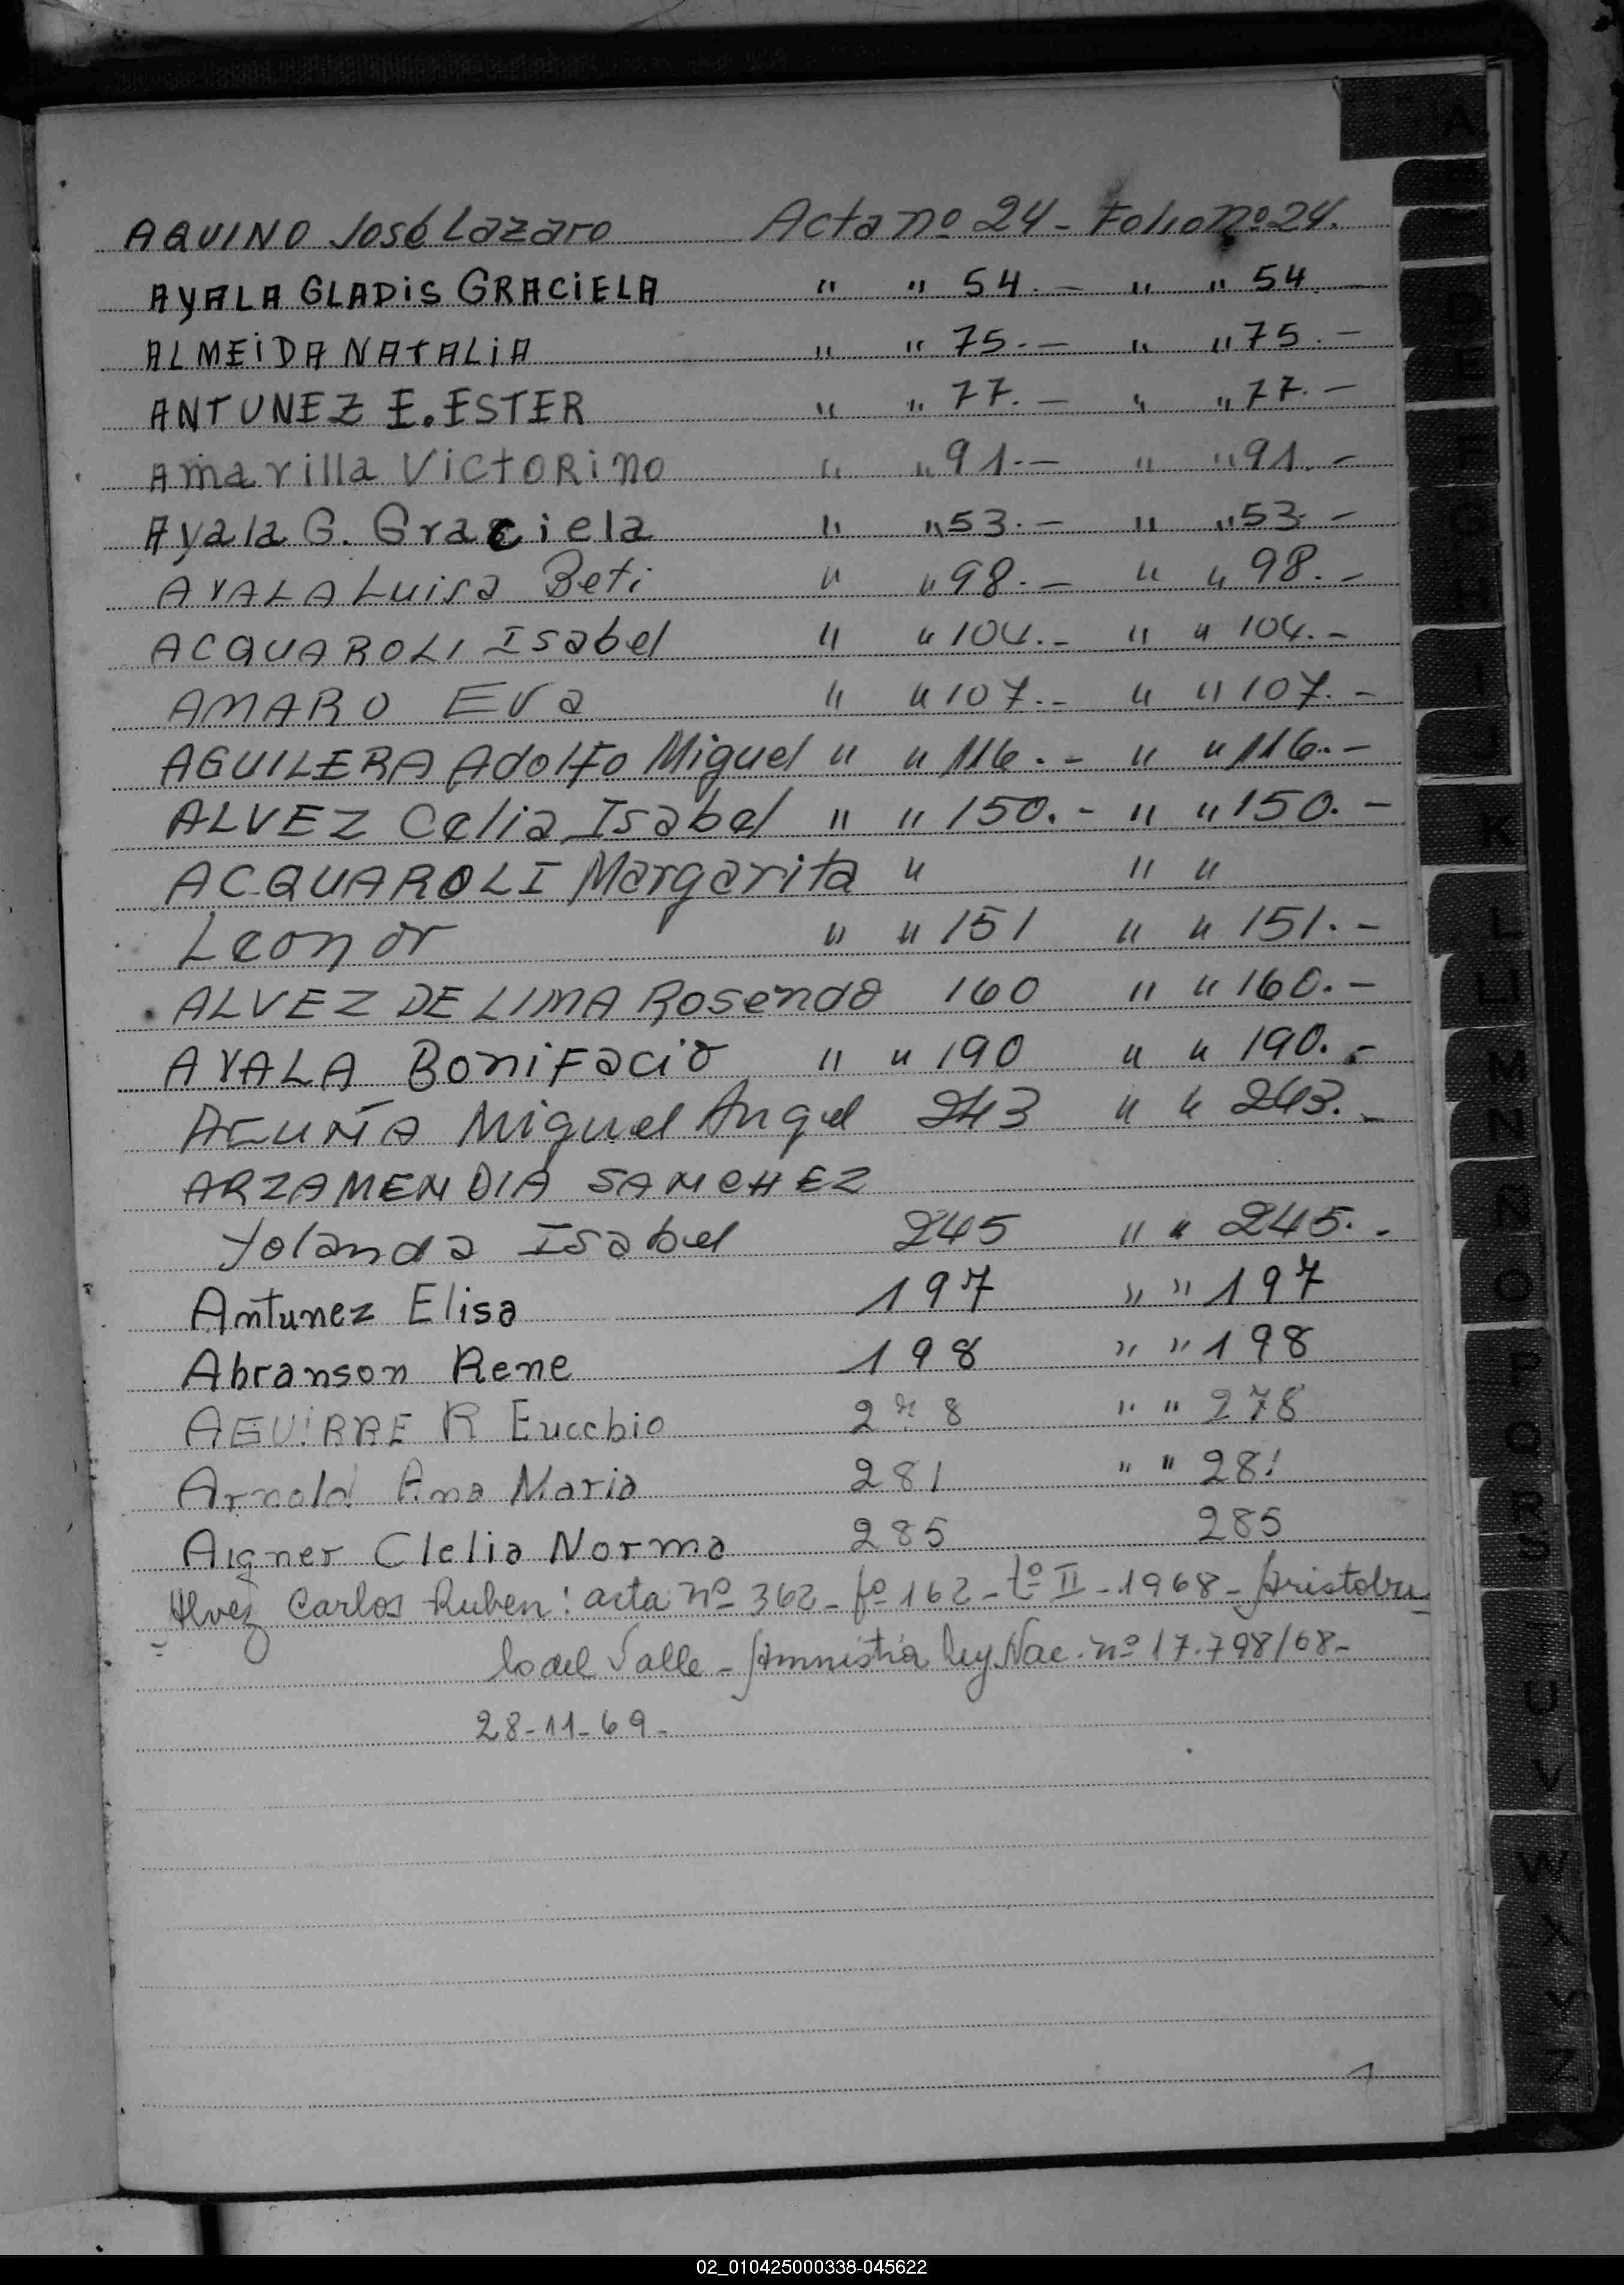 AQUINO José Lazaro Acta nº 24 - Folio nº 24.
AYALA GLADIS GRACIELA " " 54.- " " 54.-
ALMEIDA NATALIA " " 75.- " " 75.-
ANTUNEZ E. ESTER " " 77.- " " 77.-
Amarilla VICTORINO " " 91.- " " 91.-
Ayala G. Graciela " " 53.- " " 53.-
AYALA Luisa Beti " " 98.- " " 98.-
ACQUAROLI Isabel " " 104.- " " 104.-
AMARO Eva " " 107.- " " 107.-
AGUILERA Adolfo Miguel " " 116.- " " 116.-
ALVEZ Celia Isabel " " 150.- " " 150.-
ACQUAROLI Margarita " " "
Leonor " " 151 " " 151.-
ALVEZ DE LIMA Rosendo 160 " " 160.-
AYALA Bonifacio " " 190 " " 190.-
ACUÑA Miguel Angel 243 " " 243.-
ARZAMENDIA SANCHEZ
Yolanda Isabel 245 " " 245.-
Antunez Elisa 197 " " 197
Abranson Rene 198 " " 198
AGUIRRE R Eucebio 278 " " 278
Arnold Ana Maria 281 " " 281
Aigner Clelia Norma 285 285
Alvez Carlos Ruben: acta nº 362 - fº 162 - tº II - 1968 - Aristobu
lo del Valle - Amnistia Ley Nac. nº 17.798/68 -
28-11-69-
1
A
D
E
F
G
H
I
J
K
L
LL
M
N
Ñ
O
P
Q
R
S
T
U
V
W
X
Y
Z
02_010425000338-045622